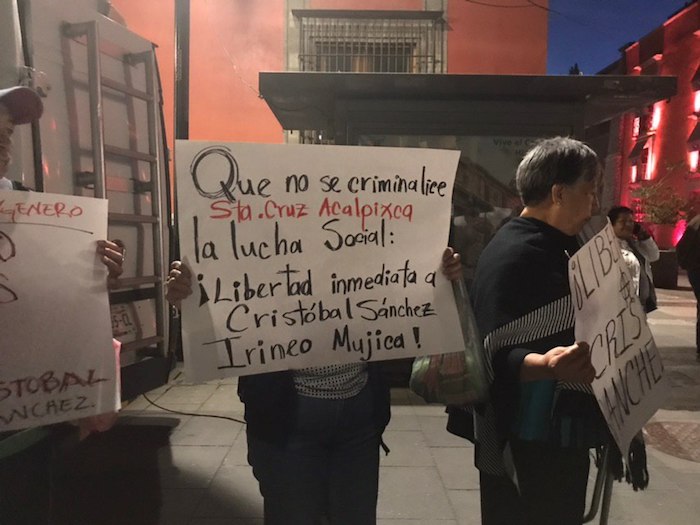 Que no se criminalice
Sta. Cruz Acalpixca
la lucha Social:
¡Libertad inmediata a
Cristóbal Sánchez
Irineo Mujica!
GENERO
STOBAL
ANCHEZ.
¡LIBE
CRIS
ANCHE